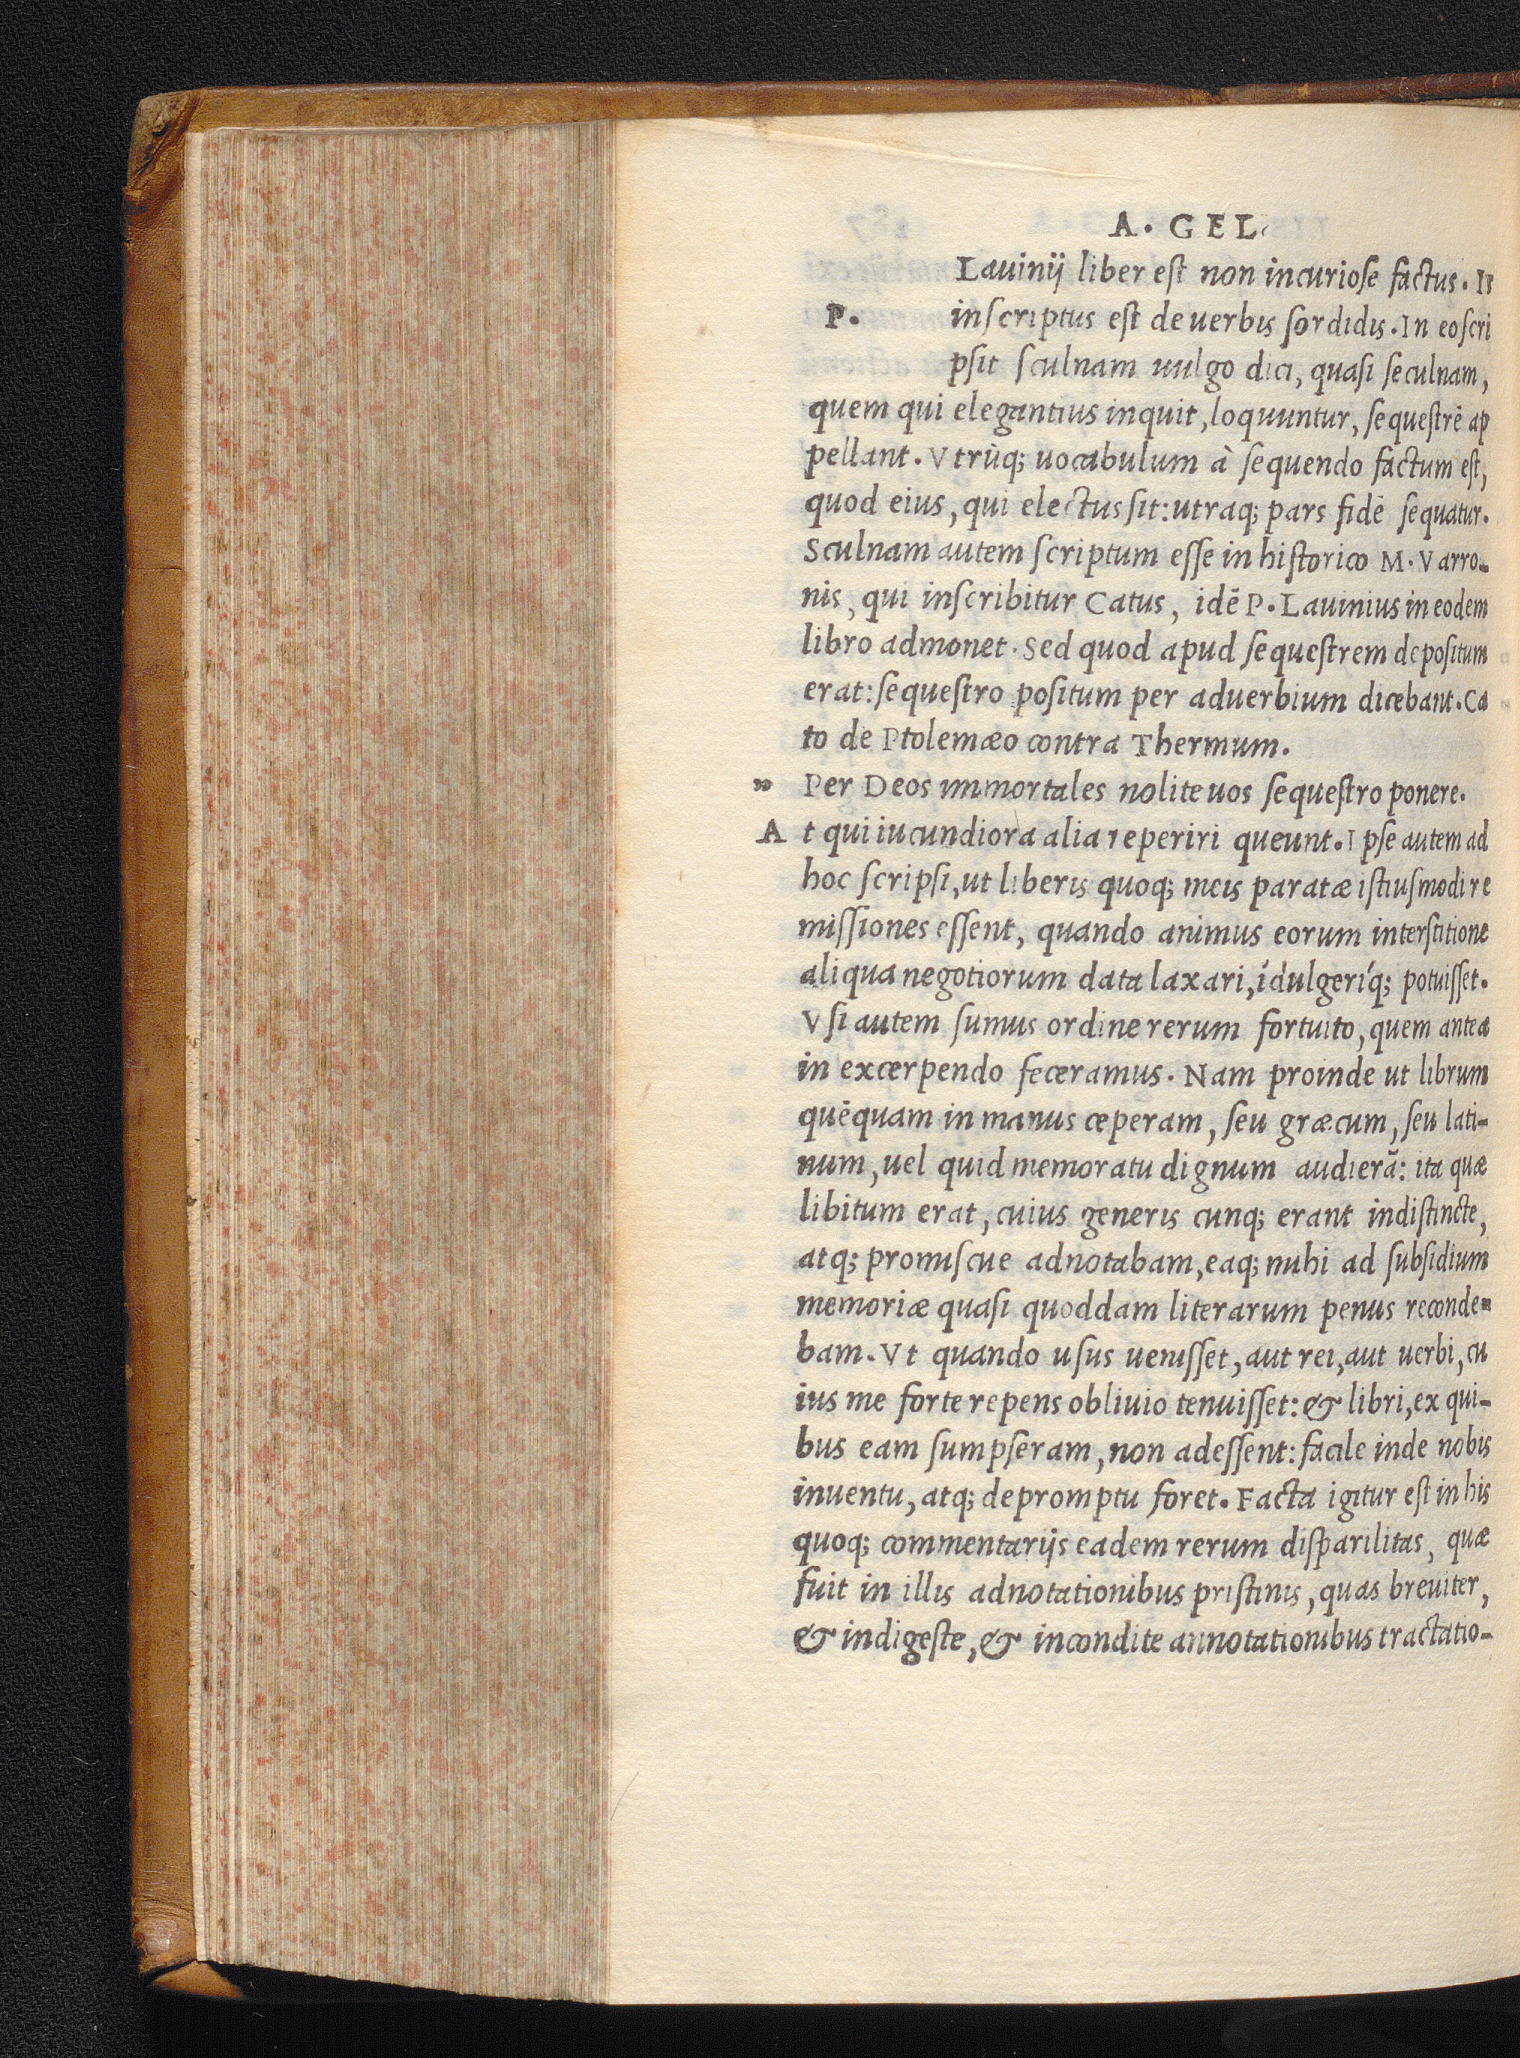 A. GEL
Lauinij liber est non incuriose factus. Is
P. inscriptus est de uerbis sordidis. In eo scri
psit sculnam uulgo dici, quasi seculnam,
quem qui elegantius inquit, loquuntur, sequestrē ap
pellant. Vtrūq; uocabulum à sequendo factum est,
quod eius, qui electus sit: utraq; pars fidē sequatur.
Sculnam autem scriptum esse in historico M. Varro-
nis, qui inscribitur Catus, idē P. Lauinius in eodem
libro admonet. Sed quod apud sequestrem depositum
erat: sequestro positum per aduerbium dicebant. Ca
to de Ptolemæo contra Thermum.
" Per Deos immortales nolite uos sequestro ponere.
At qui iucundiora alia reperiri queunt. Ipse autem ad
hoc scripsi, ut liberis quoq; meis paratæ istiusmodi re
missiones essent, quando animus eorum interstitione
aliqua negotiorum data laxari, īdulgeríq; potuisset.
Vsi autem sumus ordine rerum fortuito, quem antea
in excerpendo feceramus. Nam proinde ut librum
quēquam in manus ceperam, seu græcum, seu lati-
num, uel quid memoratu dignum audierā: ita quæ
libitum erat, cuius generis cunq; erant indistincte,
atq; promiscue adnotabam, eaq; mihi ad subsidium
memoriæ quasi quoddam literarum penus reconde-
bam. Vt quando usus uenisset, aut rei, aut uerbi, cu
ius me forte repens obliuio tenuisset: & libri, ex qui-
bus eam sumpseram, non adessent: facile inde nobis
inuentu, atq; depromptu foret. Facta igitur est in his
quoq; commentarijs eadem rerum disparilitas, quæ
fuit in illis adnotationibus pristinis, quas breuiter,
& indigeste, & incondite annotationibus tractatio-